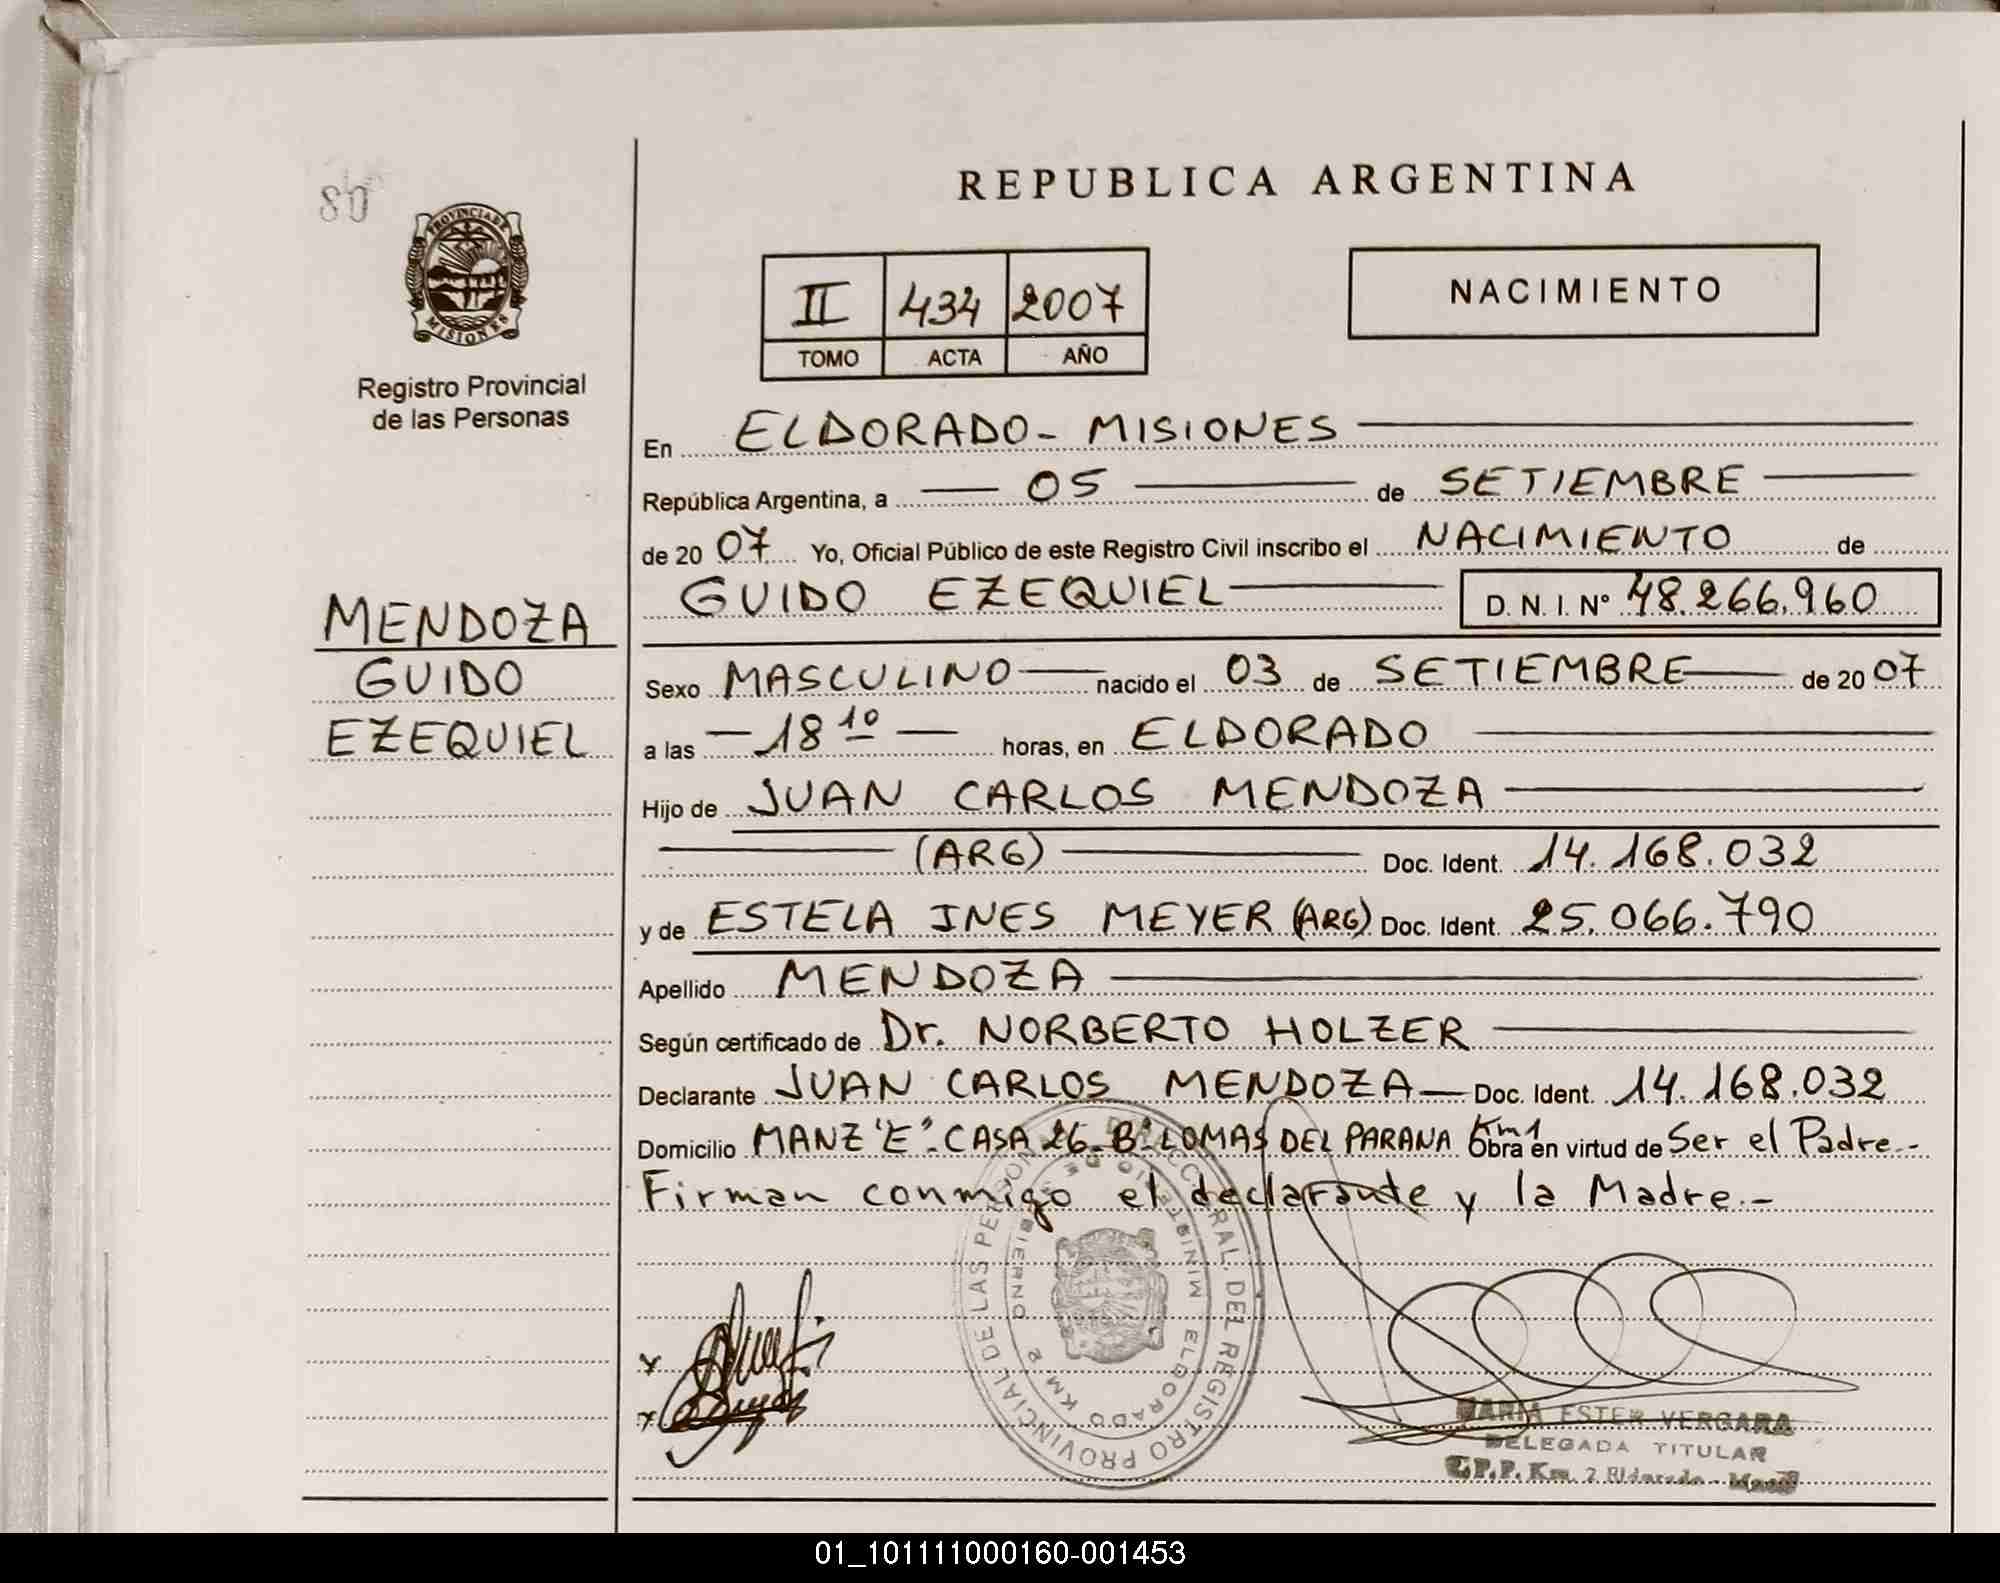 80
PROVINCIA DE
MISIONES
Registro Provincial
de las Personas
MENDOZA
GUIDO
EZEQUIEL
REPUBLICA ARGENTINA
II 434 2007
TOMO ACTA AÑO
NACIMIENTO
En ELDORADO - MISIONES
República Argentina, a 05 de SETIEMBRE
de 20 07 Yo, Oficial Público de este Registro Civil inscribo el NACIMIENTO de
GUIDO EZEQUIEL D.N.I. Nº 48.266.960
Sexo MASCULINO nacido el 03 de SETIEMBRE de 20 07
a las - 18 10 - horas, en ELDORADO
Hijo de JUAN CARLOS MENDOZA
(ARG) Doc. Ident. 14.168.032
y de ESTELA INES MEYER (ARG) Doc. Ident. 25.066.790
Apellido MENDOZA
Según certificado de Dr. NORBERTO HOLZER
Declarante JUAN CARLOS MENDOZA Doc. Ident. 14.168.032
Domicilio MANZ "E"- CASA 26 - Bº LOMAS DEL PARANA Km 1 Obra en virtud de Ser el Padre.-
Firman conmigo el declarante y la Madre.-
GENERAL DEL REGISTRO PROVINCIAL DE LAS PERSONAS
MINISTERIO DE GOBIERNO
ELDORADO KM 2
MARIA ESTER VERGARA
DELEGADA TITULAR
Km. 2 Eldorado - Mnes
01_101111000160-001453